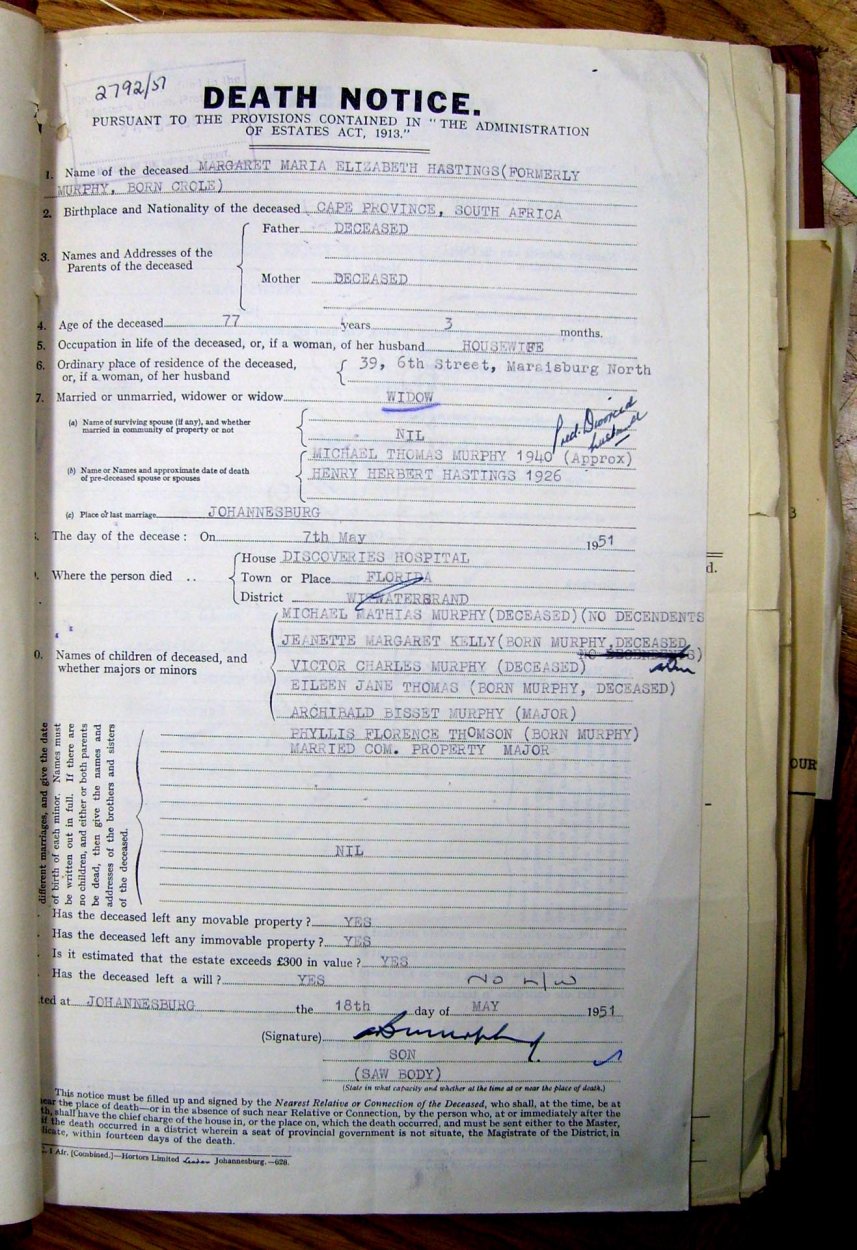 2792/51
DEATH NOTICE.
PURSUANT TO THE PROVISIONS CONTAINED IN "THE ADMINISTRATION
OF ESTATES ACT, 1913."
1. Name of the deceased MARGARET MARIA ELIZABETH HASTINGS(FORMERLY
MURPHY, BORN CROLE)
2. Birthplace and Nationality of the deceased CAPE PROVINCE, SOUTH AFRICA
3. Names and Addresses of the Parents of the deceased
Father DECEASED
Mother DECEASED
4. Age of the deceased 77 years 3 months.
5. Occupation in life of the deceased, or, if a woman, of her husband HOUSEWIFE
6. Ordinary place of residence of the deceased, or, if a woman, of her husband 39, 6th Street, Maraisburg North
7. Married or unmarried, widower or widow WIDOW
(a) Name of surviving spouse (if any), and whether married in community of property or not NIL
Divorced
(b) Name or Names and approximate date of death of pre-deceased spouse or spouses
MICHAEL THOMAS MURPHY 1940 (Approx)
HENRY HERBERT HASTINGS 1926
(c) Place of last marriage JOHANNESBURG
The day of the decease: On 7th May 1951
Where the person died ..
House DISCOVERIES HOSPITAL
Town or Place FLORIDA
District WITWATERBRAND
0. Names of children of deceased, and whether majors or minors
MICHAEL MATHIAS MURPHY(DECEASED)(NO DECENDENTS
JEANETTE MARGARET KELLY(BORN MURPHY,DECEASED
VICTOR CHARLES MURPHY (DECEASED)
EILEEN JANE THOMAS (BORN MURPHY, DECEASED)
ARCHIBALD BISSET MURPHY (MAJOR)
PHYLLIS FLORENCE THOMSON (BORN MURPHY)
MARRIED COM. PROPERTY MAJOR
different marriages, and give the date
of birth of each minor. Names must
be written out in full. If there are
no children, and either or both parents
be dead, then give the names and
addresses of the brothers and sisters
of the deceased.
NIL
Has the deceased left any movable property? YES
Has the deceased left any immovable property? YES
Is it estimated that the estate exceeds £300 in value? YES
Has the deceased left a will? YES NO H/W
ted at JOHANNESBURG the 18th day of MAY 1951
(Signature)
SON
(SAW BODY)
(State in what capacity and whether at the time at or near the place of death.)
This notice must be filled up and signed by the Nearest Relative or Connection of the Deceased, who shall, at the time, be at
ear the place of death—or in the absence of such near Relative or Connection, by the person who, at or immediately after the
th, shall have the chief charge of the house in, or the place on, which the death occurred, and must be sent either to the Master,
if the death occurred in a district wherein a seat of provincial government is not situate, the Magistrate of the District, in
licate, within fourteen days of the death.
1 Afr. [Combined.]—Hortors Limited Johannesburg.—628.
d.
OUR